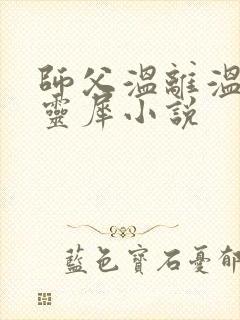 師父溫離溫
靈犀小說
藍色寶石憂郁